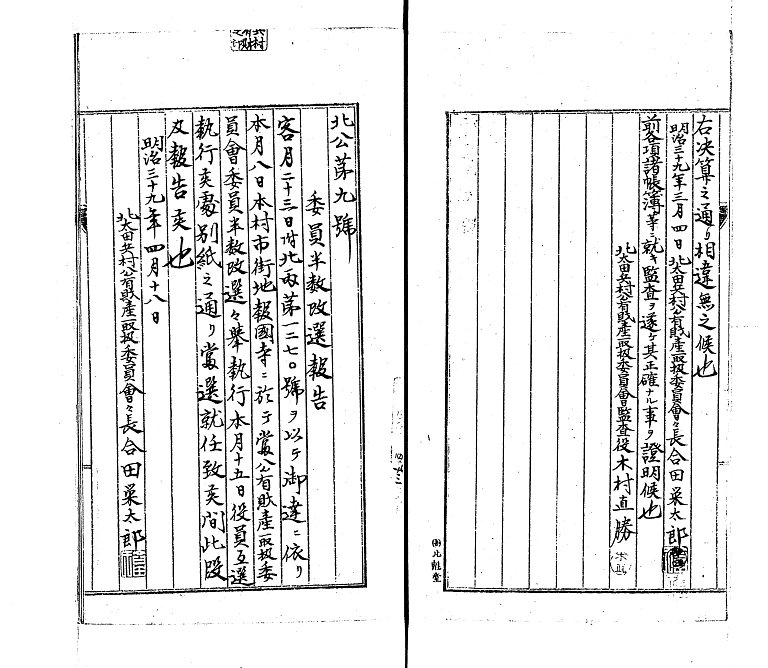 右決算之通リ相違無之候也
明治三十九年三月四日北太田兵村公有財産取扱委員會々長合田粂太郎
前各項諸帳簿等ニ就キ監査ヲ遂ケ其正確ナル事ヲ證明候也
北太田兵村公有財産取扱委員會監査役木村直勝
北公第九號
委員半数改選報告
客月二十三日附北兵第一二七〇號ヲ以テ御達ニ依リ
本月八日本村市街地報國寺ニ於テ當公有財産取扱委
員會委員半数改選々擧執行本月十五日役員互選
執行致處別紙之通リ當選就任致候間此段
及報告候也
明治三十九年四月十八日
北太田兵村公有財産取扱委員會々長合田粂太郎
北龍堂